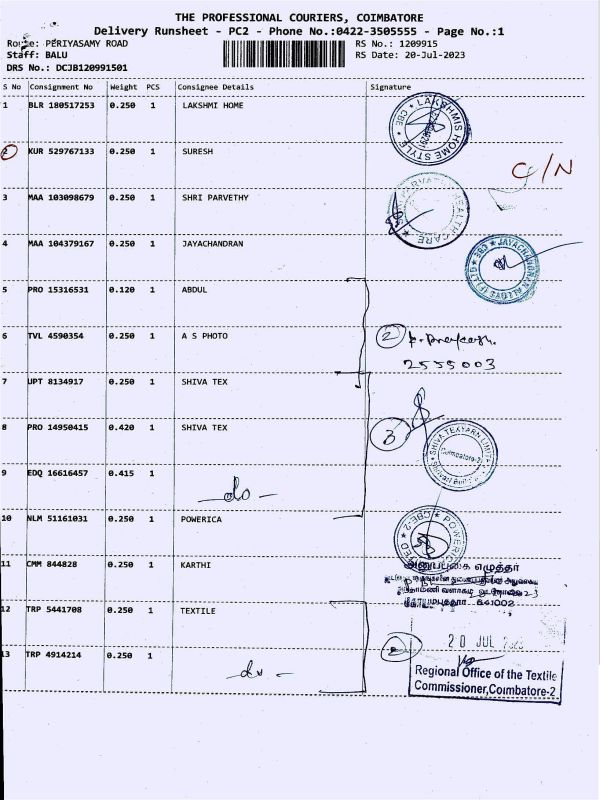 THE PROFESSIONAL COURIERS, COIMBATORE
Delivery Runsheet - PC2 - Phone No.:0422-3505555 - Page No.:1
Route: PERIYASAMY ROAD RS No.: 1209915
Staff: BALU RS Date: 20-Jul-2023
DRS No.: DCJB120991501
S No Consignment No Weight PCS Consignee Details Signature
1 BLR 180517253 0.250 1 LAKSHMI HOME
LAKSHMIS HOME STYLE CBE
2 KUR 529767133 0.250 1 SURESH
C/N
3 MAA 103098679 0.250 1 SHRI PARVETHY
HEALTH CARE
4 MAA 104379167 0.250 1 JAYACHANDRAN
JAYACHANDRAN
5 PRO 15316531 0.120 1 ABDUL
6 TVL 4590354 0.250 1 A S PHOTO
2
2555003
7 UPT 8134917 0.250 1 SHIVA TEX
8 PRO 14950415 0.420 1 SHIVA TEX
3 SHIVA TEXYARN LIMITED
Coimbatore-2
9 EDQ 16616457 0.415 1 do -
10 NLM 51161031 0.250 1 POWERICA
POWERICA CBE-2
11 CMM 844828 0.250 1 KARTHI
அனுப்புகை எழுத்தர்
641002
12 TRP 5441708 0.250 1 TEXTILE
20 JUL 2023
13 TRP 4914214 0.250 1 do -
2
Regional Office of the Textile
Commissioner,Coimbatore-2